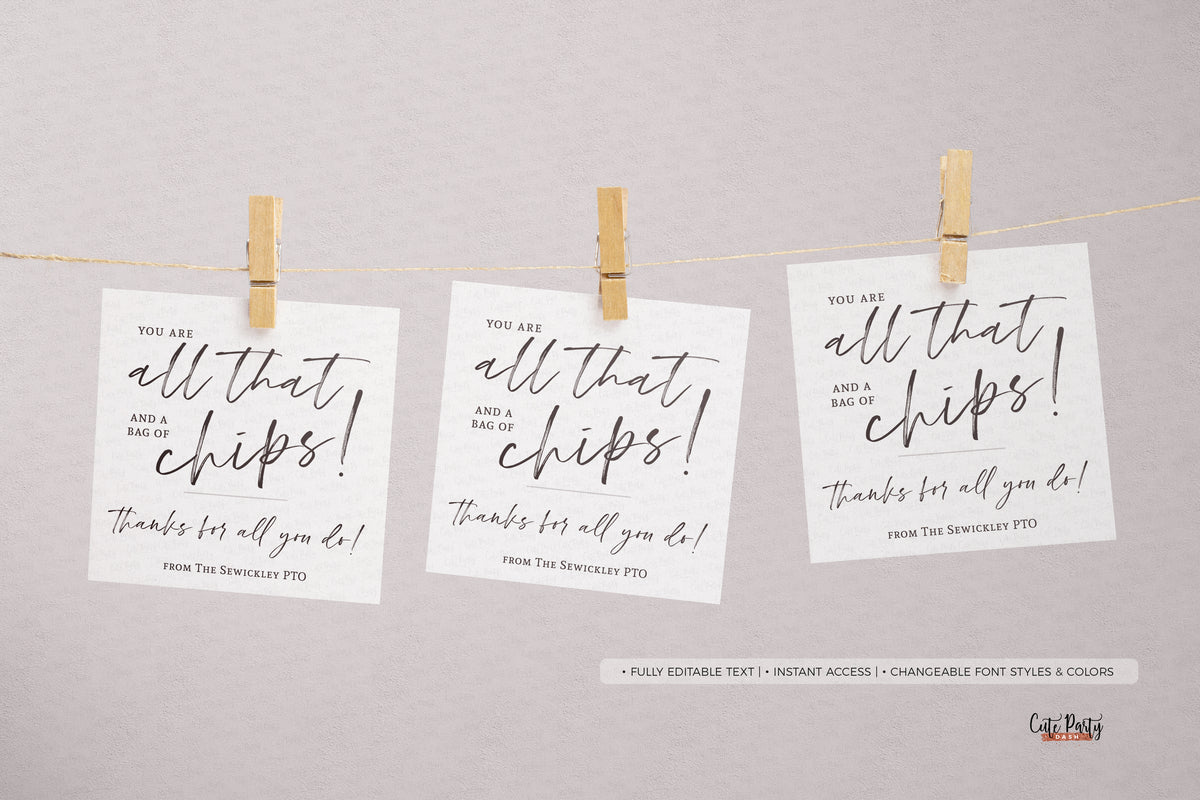 YOU ARE
all that
AND A
BAG OF
chips!
thanks for all you do!
FROM THE SEWICKLEY PTO
YOU ARE
all that
AND A
BAG OF
chips!
thanks for all you do!
FROM THE SEWICKLEY PTO
YOU ARE
all that
AND A
BAG OF
chips!
thanks for all you do!
FROM THE SEWICKLEY PTO
• FULLY EDITABLE TEXT | • INSTANT ACCESS | • CHANGEABLE FONT STYLES & COLORS
Cute Party
DASH